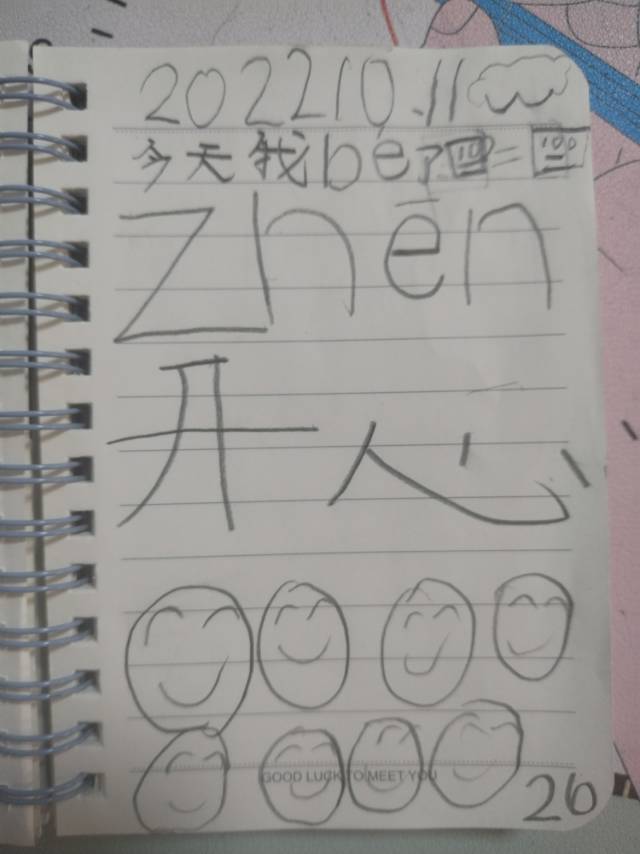 202210.11
今天我bé了
zhēn
开心
GOOD LUCK TO MEET YOU
26